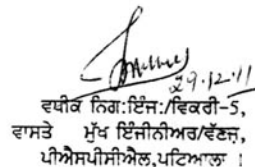 29.12.11
ਵਧੀਕ ਨਿਗ:ਇੰਜ:/ਵਿਕਰੀ-5,
ਵਾਸਤੇ ਮੁੱਖ ਇੰਜੀਨੀਅਰ/ਵੱਣਜ,
ਪੀਐਸਪੀਸੀਐਲ,ਪਟਿਆਲਾ ।